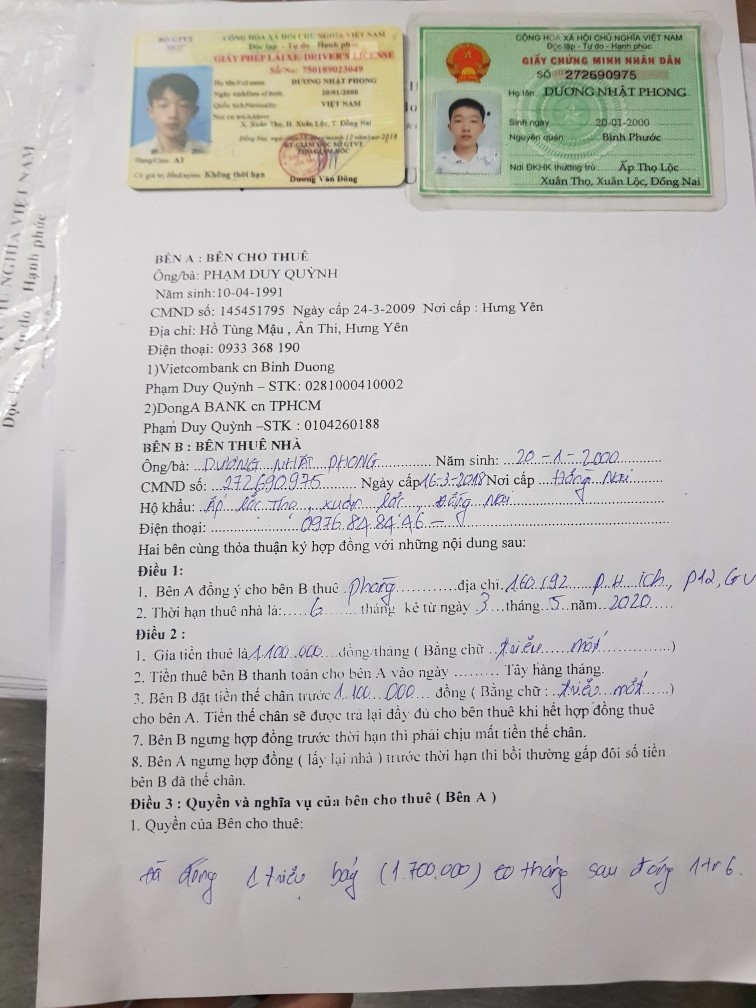 BỘ GTVT
MOT
CỘNG HÒA XÃ HỘI CHỦ NGHĨA VIỆT NAM
Độc lập - Tự do - Hạnh phúc
GIẤY PHÉP LÁI XE/DRIVER'S LICENSE
Số/No: 750189023049
Họ tên/Full name: DƯƠNG NHẬT PHONG
Ngày sinh/Date of Birth: 20/01/2000
Quốc tịch/Nationality: VIỆT NAM
Nơi cư trú/Address:
X. Xuân Thọ, H. Xuân Lộc, T. Đồng Nai
Đồng Nai,
Hạng/Class: A1
Có giá trị đến/Expires: Không thời hạn
Dương Văn Đông
CỘNG HÒA XÃ HỘI CHỦ NGHĨA VIỆT NAM
Độc lập - Tự do - Hạnh phúc
GIẤY CHỨNG MINH NHÂN DÂN
SỐ 272690975
Họ tên: DƯƠNG NHẬT PHONG
Sinh ngày 20-01-2000
Nguyên quán Bình Phước
Nơi ĐKHK thường trú: Ấp Thọ Lộc
Xuân Thọ, Xuân Lộc, Đồng Nai
NGHĨA VIỆT NAM
Hạnh phúc
BÊN A : BÊN CHO THUÊ
Ông/bà: PHẠM DUY QUỲNH
Năm sinh:10-04-1991
CMND số: 145451795 Ngày cấp 24-3-2009 Nơi cấp : Hưng Yên
Địa chỉ: Hồ Tùng Mậu , Ân Thi, Hưng Yên
Điện thoại: 0933 368 190
1)Vietcombank cn Binh Duong
Phạm Duy Quỳnh – STK: 0281000410002
2)DongA BANK cn TPHCM
Phạm Duy Quỳnh –STK : 0104260188
BÊN B : BÊN THUÊ NHÀ
Ông/bà: DƯƠNG NHẤT PHONG Năm sinh: 20-1-2000
CMND số: 272690975 Ngày cấp 16-3-2018 Nơi cấp Đồng Nai
Hộ khẩu: Ấp lốc Thọ, xuân lốc, Đồng Nai
Điện thoại: 0976.84.84.46
Hai bên cùng thỏa thuận ký hợp đồng với những nội dung sau:
Điều 1:
1. Bên A đồng ý cho bên B thuê phòng địa chỉ 160/92 P.H ích, P12, GV
2. Thời hạn thuê nhà là: 6 tháng kể từ ngày 3 tháng 5 năm 2020
Điều 2 :
1. Gía tiền thuê là 1.100.000 đồng/tháng ( Bằng chữ triệu mốt )
2. Tiền thuê bên B thanh toán cho bên A vào ngày ......... Tây hàng tháng.
3. Bên B đặt tiền thế chân trước 1.100.000 đồng ( Bằng chữ : triệu mốt )
cho bên A. Tiền thế chân sẽ được trả lại đầy đủ cho bên thuê khi hết hợp đồng thuê
7. Bên B ngưng hợp đồng trước thời hạn thì phải chịu mất tiền thế chân.
8. Bên A ngưng hợp đồng ( lấy lại nhà ) trước thời hạn thì bồi thường gấp đôi số tiền
bên B đã thế chân.
Điều 3 : Quyền và nghĩa vụ của bên cho thuê ( Bên A )
1. Quyền của Bên cho thuê:
đã đóng 1 triệu bảy (1.700.000) tháng sau đóng 1tr6.